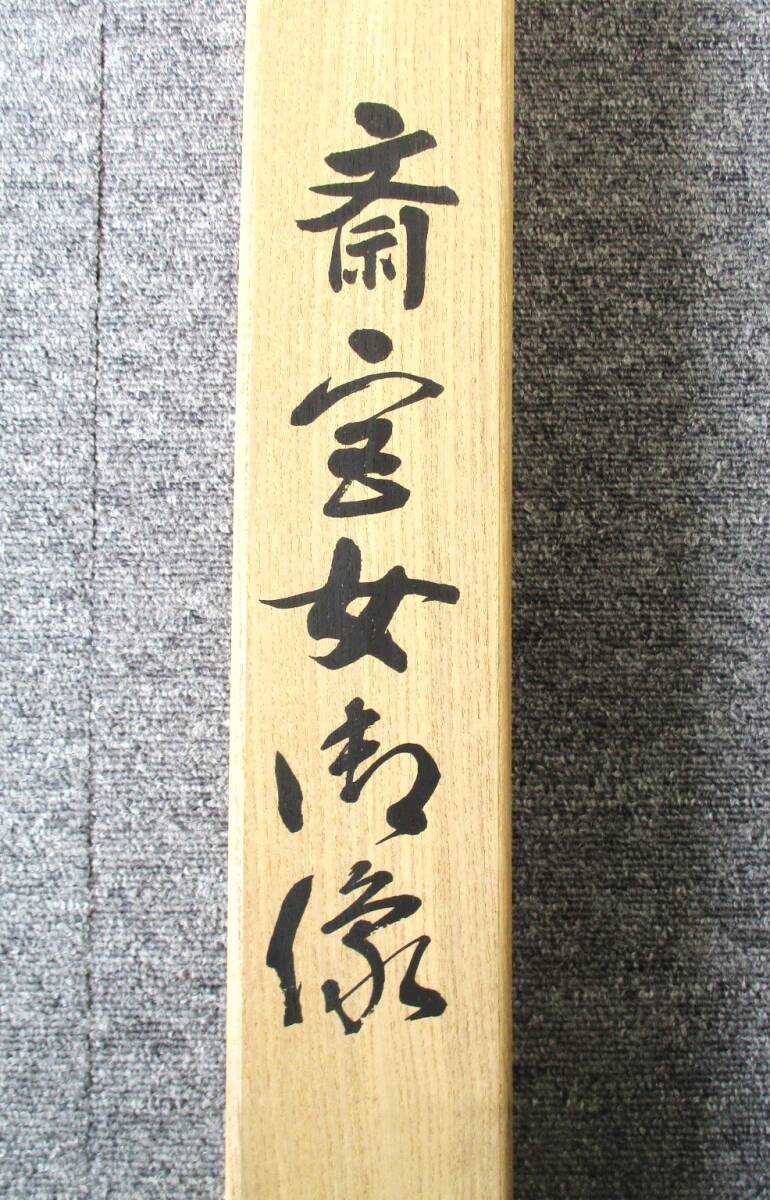 斎宮女御像